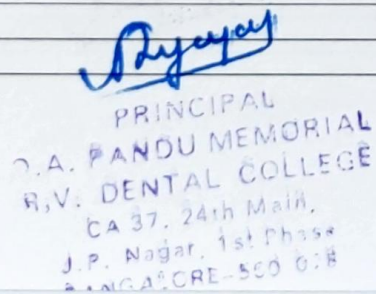 PRINCIPAL
D.A. PANDU MEMORIAL
R.V. DENTAL COLLEGE
CA 37, 24th Main,
J.P. Nagar, 1st Phase
BANGALORE-560 078